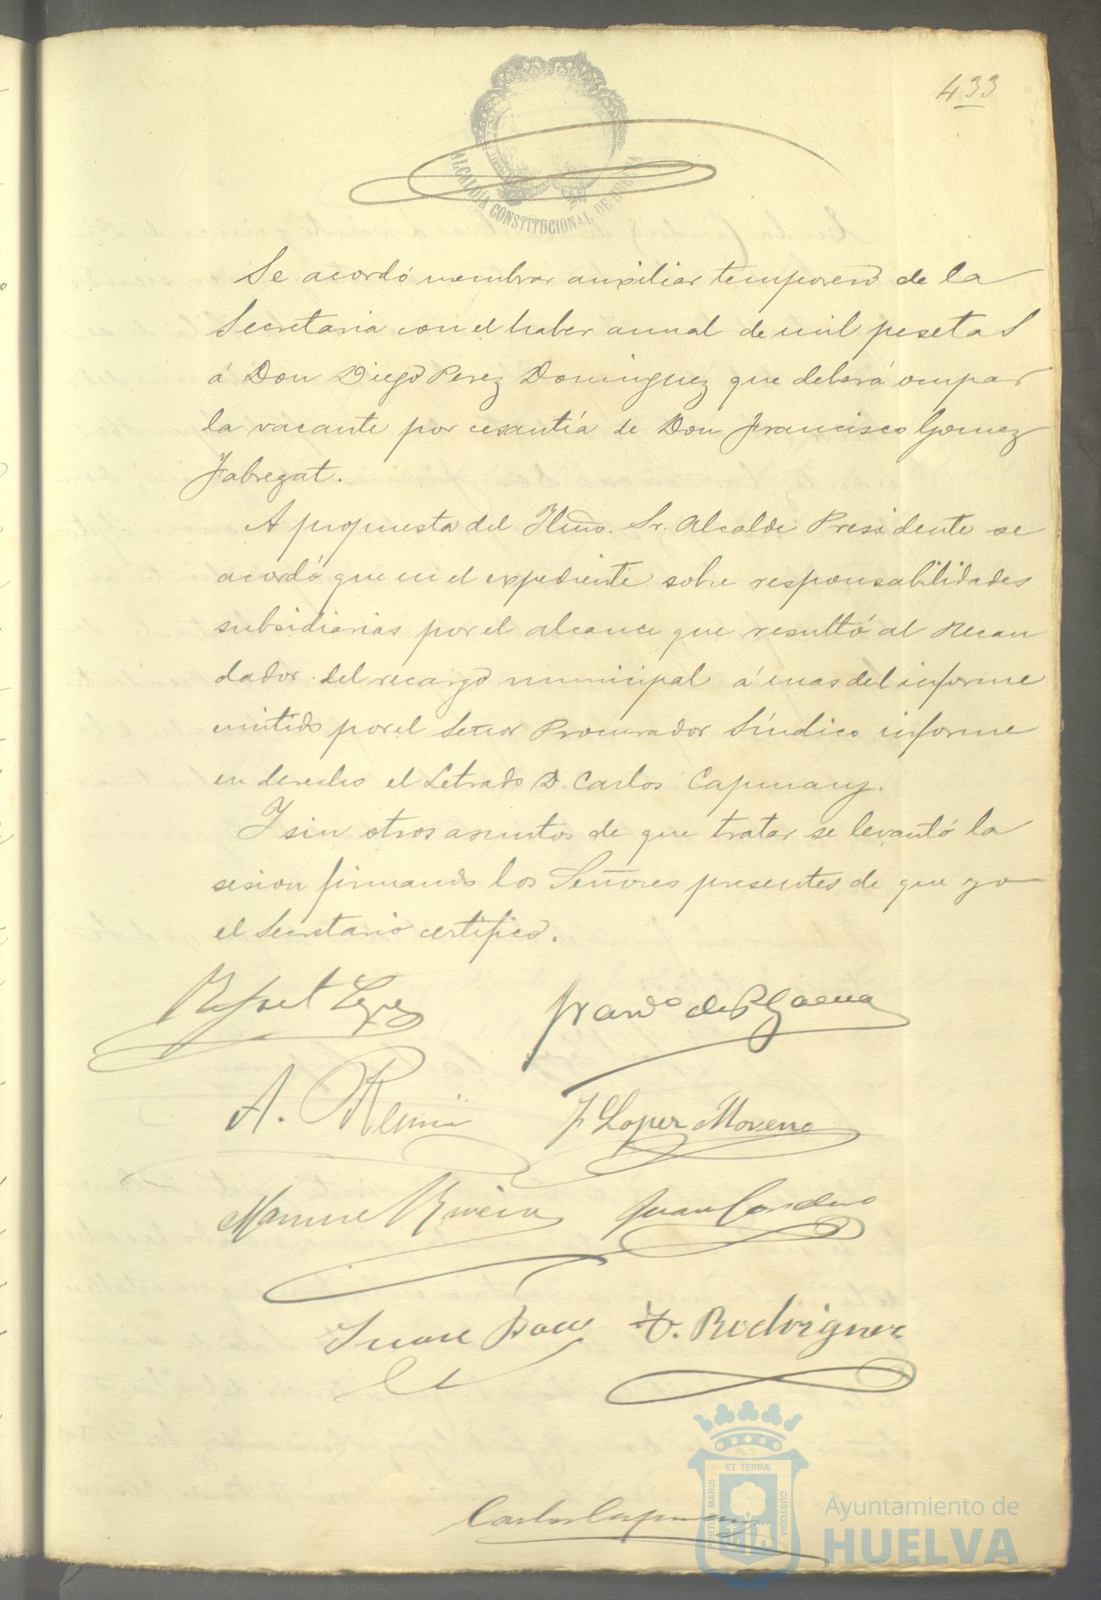 433
ALCALDIA CONSTITUCIONAL DE HUELVA
Se acordó nombrar auxiliar temporero de la
Secretaria con el haber anual de mil pesetas
á Don Diego Perez Dominguez que deberá ocupar
la vacante por cesantía de Don Francisco Gomez
Fabregat.
A propuesta del Yltmo. Sr. Alcalde Presidente se
acordó que en el expediente sobre responsabilidades
subsidiarias por el alcance que resultó al Recau
dador del recargo municipal á mas del informe
emitido por el Señor Procurador Síndico informe
en derecho el Letrado D. Carlos Capmany.
Y sin otros asuntos de que tratar se levantó la
sesion firmando los Señores presentes de que yo
el Secretario certifico.
Rafael Lopez
Franco de P. Gaena
A.
F. Lopez Moreno
Manuel
Juan Cordero
Juan
F. Rodriguez
Carlos Capmany
ET TERRÆ
PORTUS MARIS
CUSTODIA
Ayuntamiento de
HUELVA